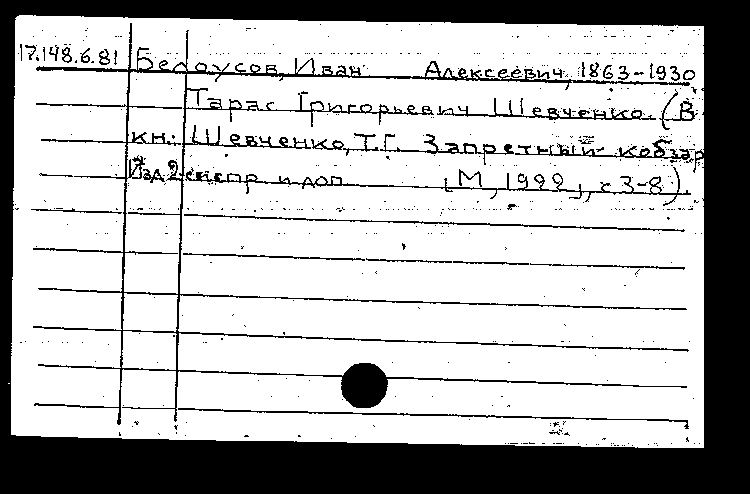 17.148.6.81 Белоусов, Иван Алексеевич, 1863-1930
Тарас Григорьевич Шевченко. (В
кн.: Шевченко, Т.Г. Запретный кобзар
Изд 2е испр и доп [М, 1922], с 3-8).